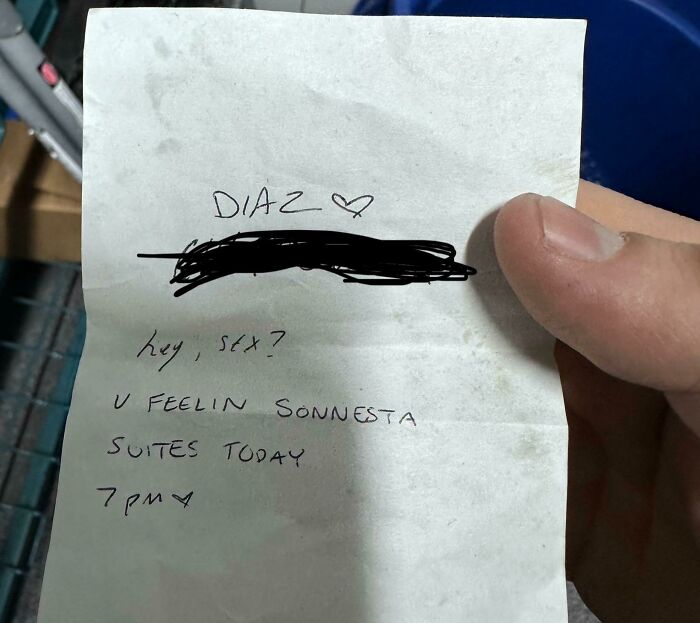 DIAZ ♡
hey, sex?
U FEELIN SONNESTA
SUITES TODAY
7 PM ♡